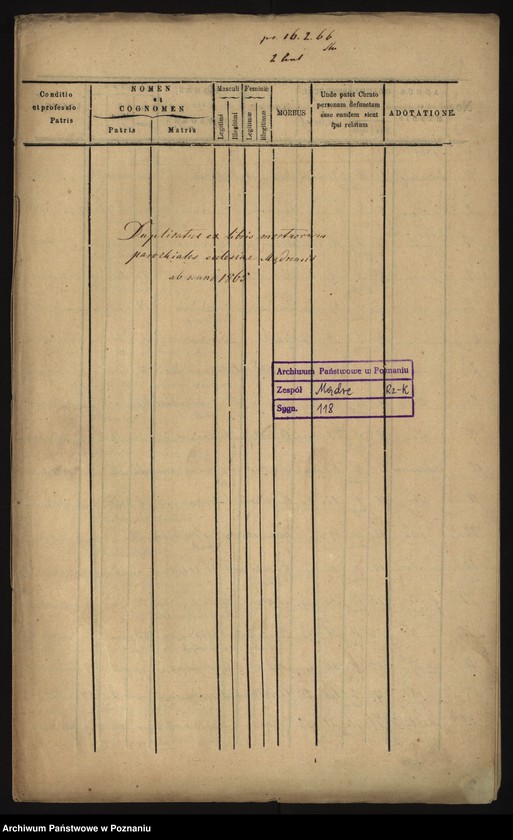 pr. 16.2.66
Conditio
et professio
Patris
NOMEN
et
COGNOMEN
Patris
Matris
Masculi
Feminini
Legitimi
Illegitimi
Legitimae
Illegitimae
MORBUS
Unde patet Curato
personam defunctam
esse eandem sicut
ipsi relatum
ADOTATIONE.
Duplicatus ex libris mortuorum
parochiales ecclesiae Mądrensis
ab anno 1865
Archiwum Państwowe w Poznaniu
Zespół Mądre Rz-K
Sygn. 118
Archiwum Państwowe w Poznaniu